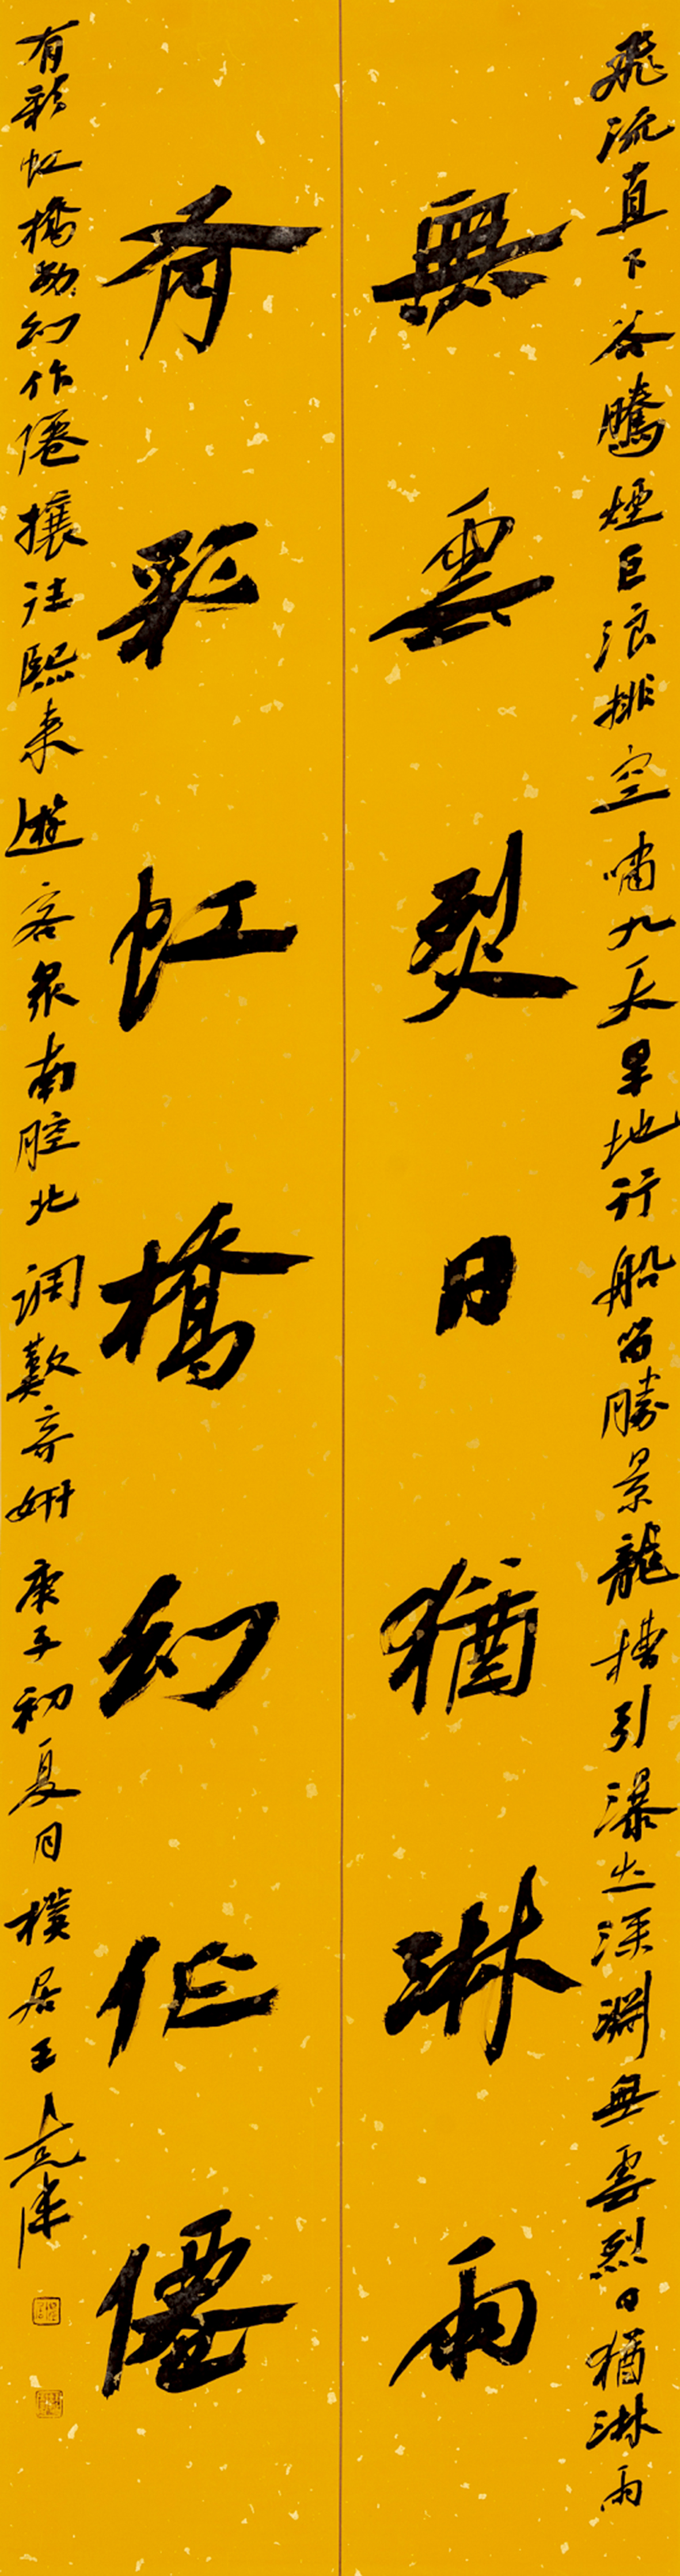 飛流直下谷騰煙巨浪排空嘯九天旱地行船留勝景龍槽引瀑出深淵無雲烈日猶淋雨
無雲烈日猶淋雨
有彩虹橋幻作僊
有彩虹橋幻作僊攘往熙來遊客眾南腔北調歎奇妍庚子初夏月樸居王